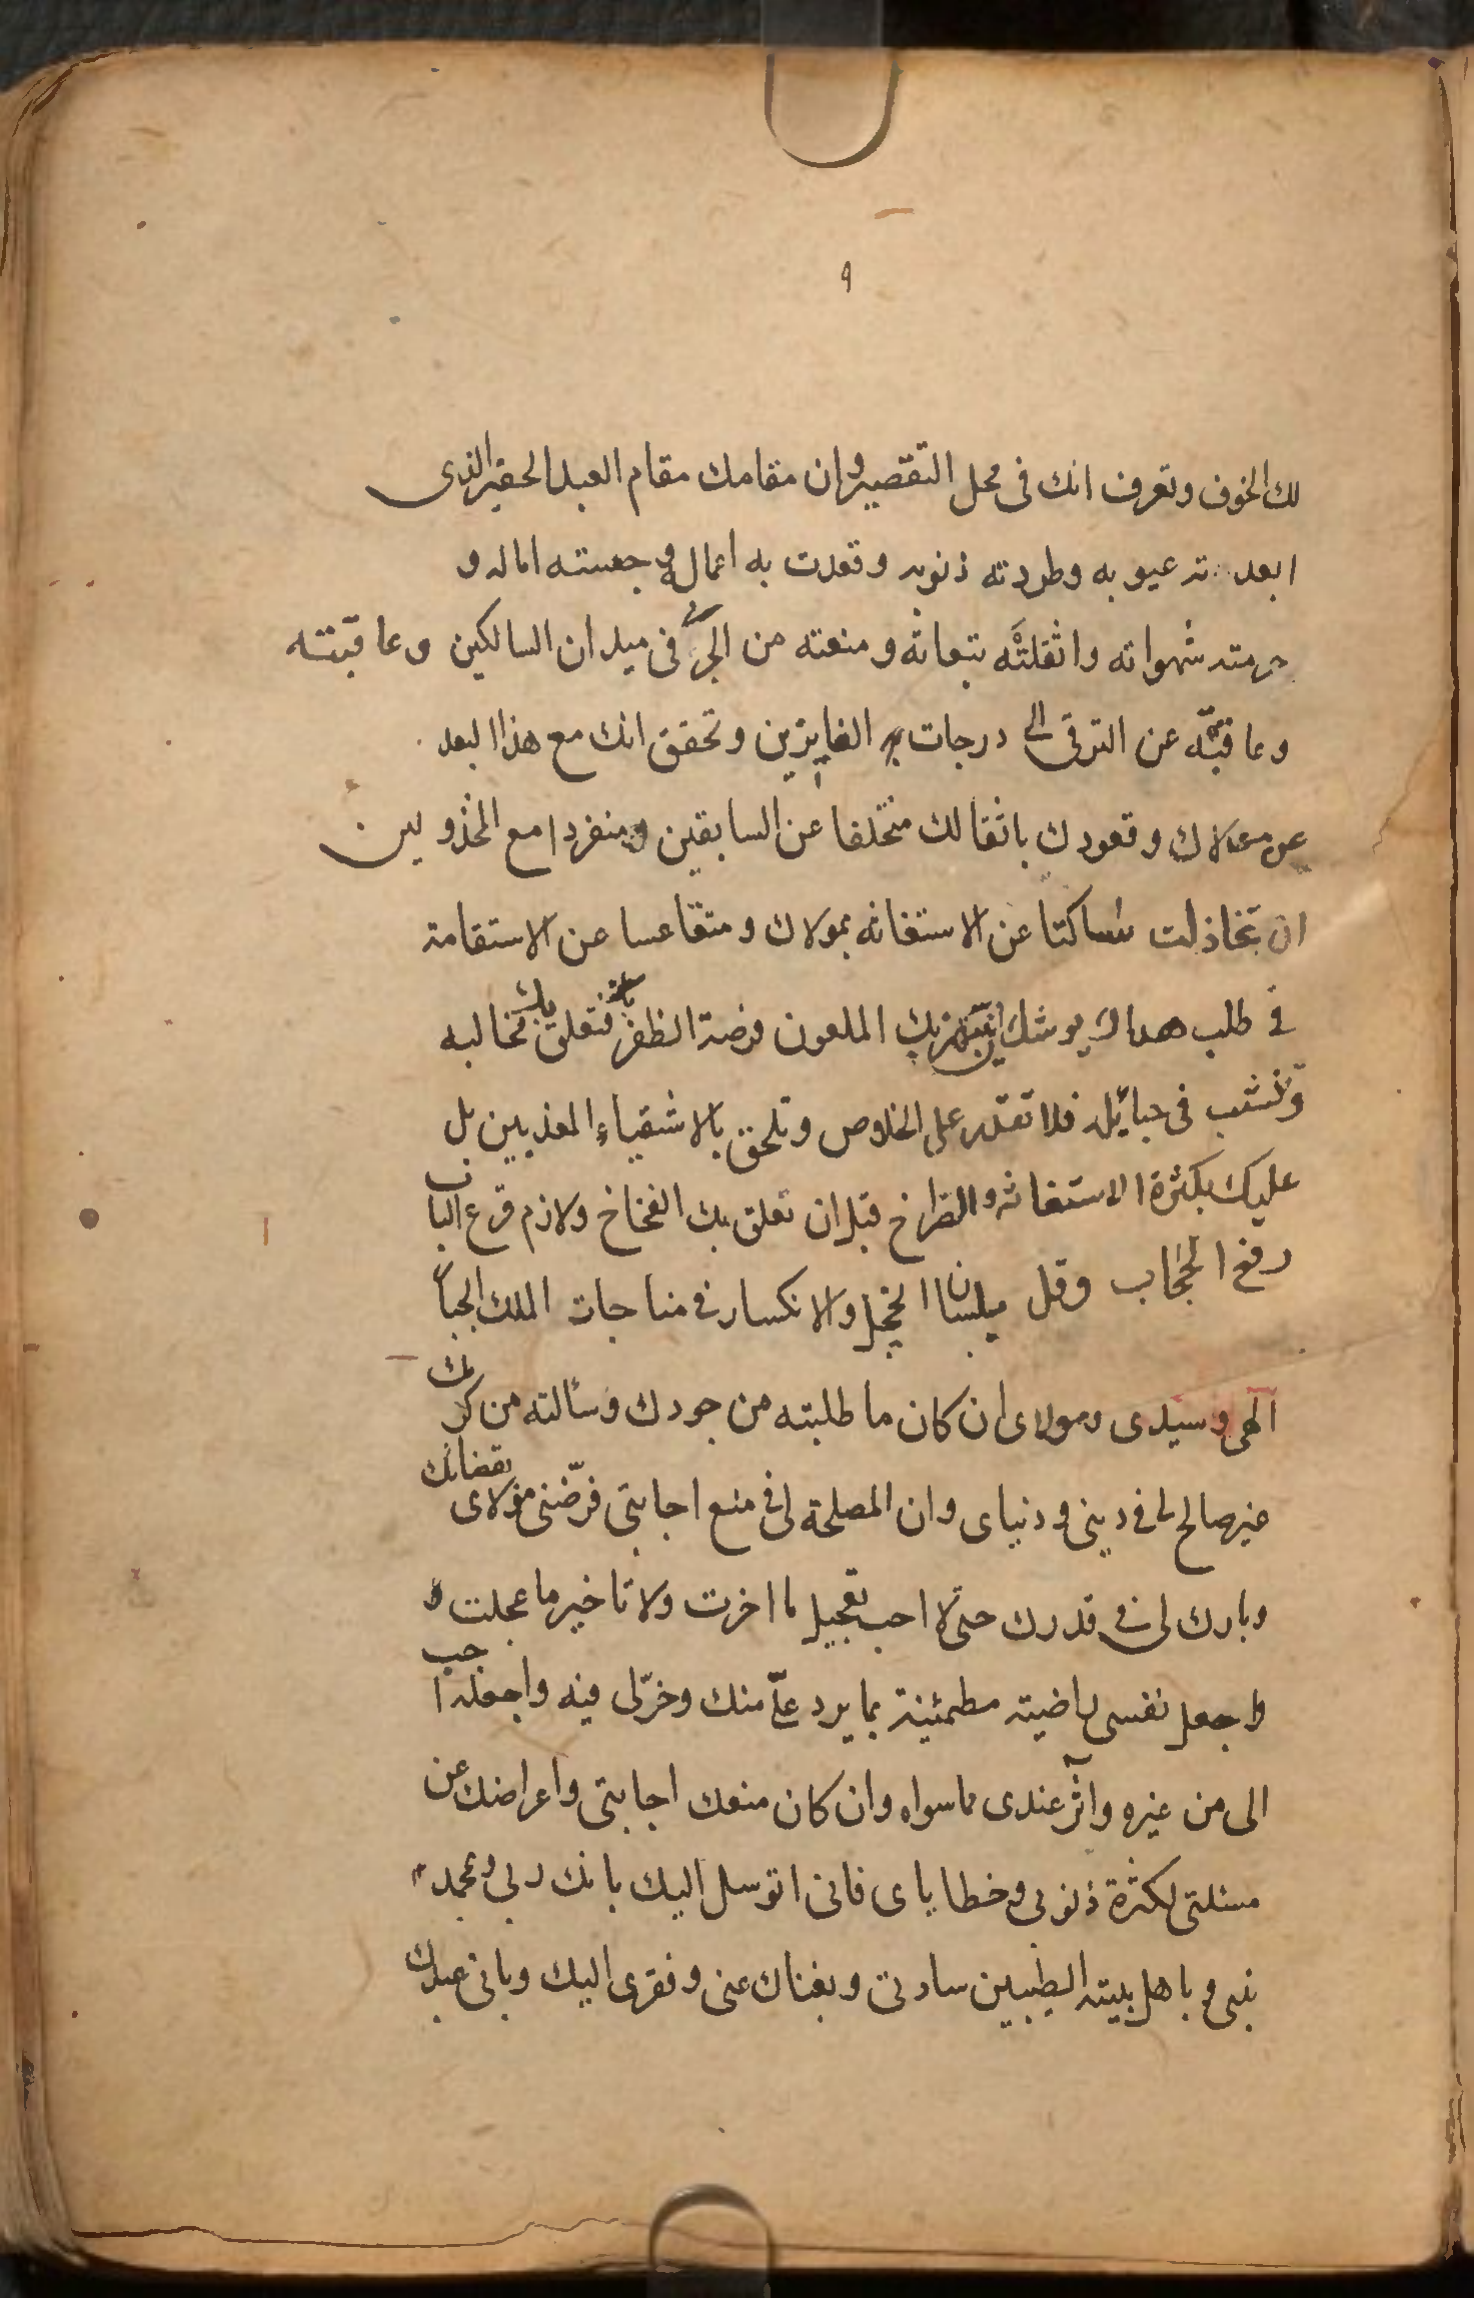 ٩
لك الخوف وتعرف انك فى محل التقصير وان مقامك مقام العبد الحقير الذى
ابعدته عيوبه وطردته ذنوبه وقعدت به اعماله وحبسته اماله و
حرمته شهواته واثقلته تبعاته ومنعته من الجرى فى ميدان السالكين وعاقبته
وعاقته عن الترقى الى درجات الفايزين وتحقق انك مع هذا البعد
عن مولاك وقعودك باثقالك متخلفا عن السابقين ومنفردا مع المخذولين
ان تخاذلت ساكتا عن الاستغاثه بمولاك ومتقاعسا عن الاستقامة
فى طلب هداك يوشك ان ينتهز بك الملعون فرصة الظفر فتعلق بك مخالبه
وتنشب فى حبائله فلا تقدر على الخلاص وتلحق بالاشقياء المعذبين بل
عليك بكثرة الاستغاثه والصراخ قبل ان تعلق بك الفخاخ ولازم قرع الباب
رفع الحجاب وقل بلسان الخجل والانكسار فى مناجات الملك الجبار
آلهى وسيدى ومولاى ان كان ما طلبته من جودك وسألته من كرمك
غير صالح لى فى دينى ودنياى وان المصلحة لى فى منع اجابتى فرضنى مولاى بقضائك
وبارك لى فى قدرك حتى لا احب تعجيل ما اخرت ولا تاخير ما عجلت
واجعل نفسى راضيته مطمئنة بما يرد علىّ منك وخر لى فيه واجعله احب
الى من غيره واثر عندى مما سواه وان كان منعك اجابتى واعراضك عن
مسئلتى لكثرة ذنوبى وخطاياى فانى اتوسل اليك بانك ربى ومحمد
نبى وباهل بيته الطيبين سادتى وبغناك عنى وفقرى اليك وبانى عبدك